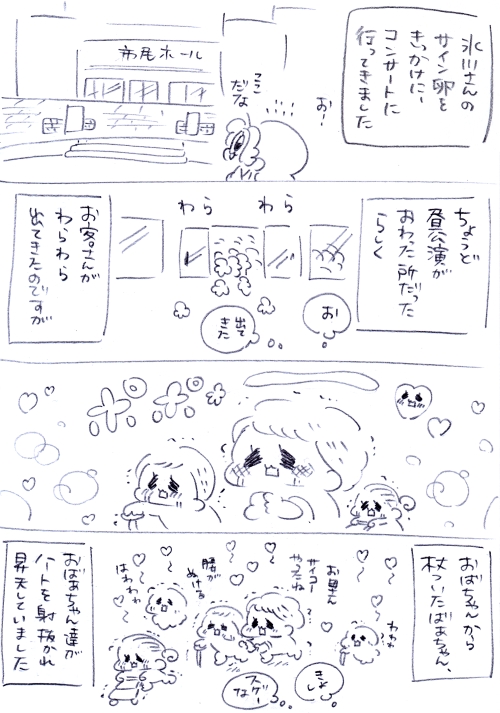 氷川さんの
サイン卵を
きっかけに
コンサートに
行ってきました
お!
ここ
だな
市尾ホール
ちょうど
昼公演が
おわった所だった
らしく
わら
わら
お
出て
きた
お客さんが
わらわら
出てきたのですが
おばちゃんから
杖ついたばあちゃん、
わわわ
お母さん
サイコー
やったね
腰が
ぬける
はわわわ
きよし
スゲー
な
おばあちゃん達が
ハートを射抜かれ
昇天していました